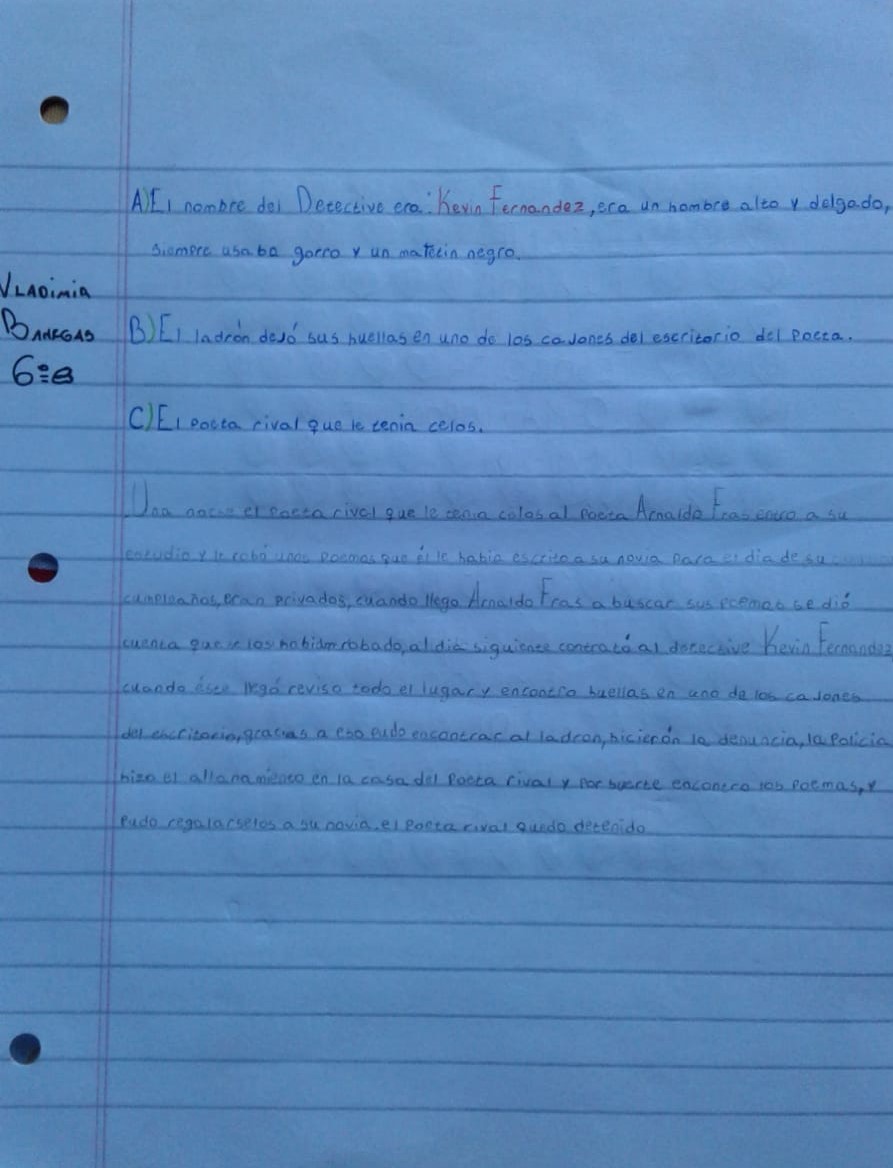 A) El nombre del Detective era: Kevin Fernandez, era un hombre alto y delgado,
siempre usaba gorro y un maletin negro.
VLADimiA
BANEGAS
6=B
B) El ladrón dejó sus huellas en uno de los cajones del escritorio del Poeta.
C) El Poeta rival que le tenia celos.
Una noche el Poeta rival que le tenia celos al Poeta Arnaldo Fras entro a su
estudio y le robó unos Poemas que él le habia escrito a su novia para el dia de su
cumpleaños, eran privados, cuando llego Arnaldo Fras a buscar sus Poemas se dió
cuenta que se los habian robado, al dia siguiente contrató al detective Kevin Fernandez
cuando éste llegó reviso todo el lugar y encontro huellas en uno de los cajones
del escritorio, gracias a eso pudo encontrar al ladron, hicierón la denuncia, la Policia
hizo el allanamiento en la casa del Poeta rival y Por suerte encontro los Poemas, y
Pudo regalarselos a su novia. el Poeta rival quedo detenido